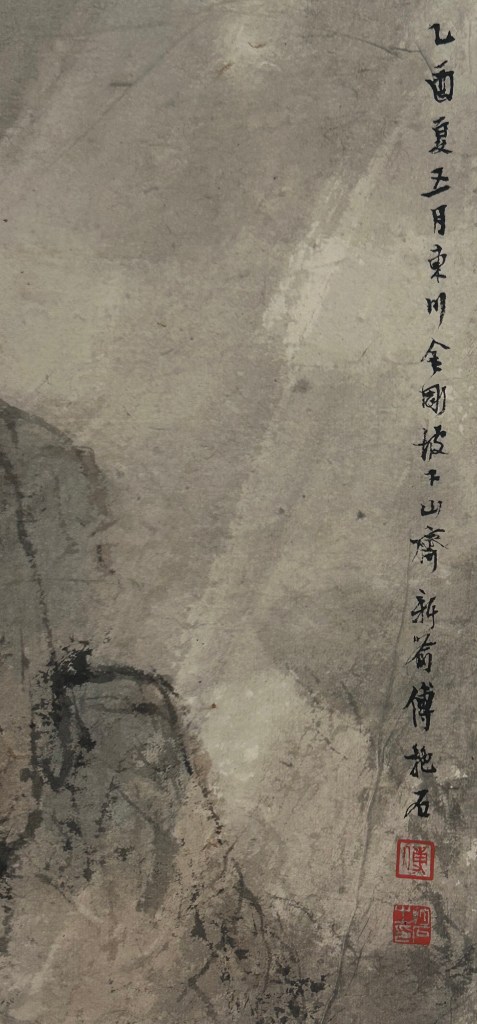 乙酉夏五月東川金剛坡下山齋新喻傅抱石
傅